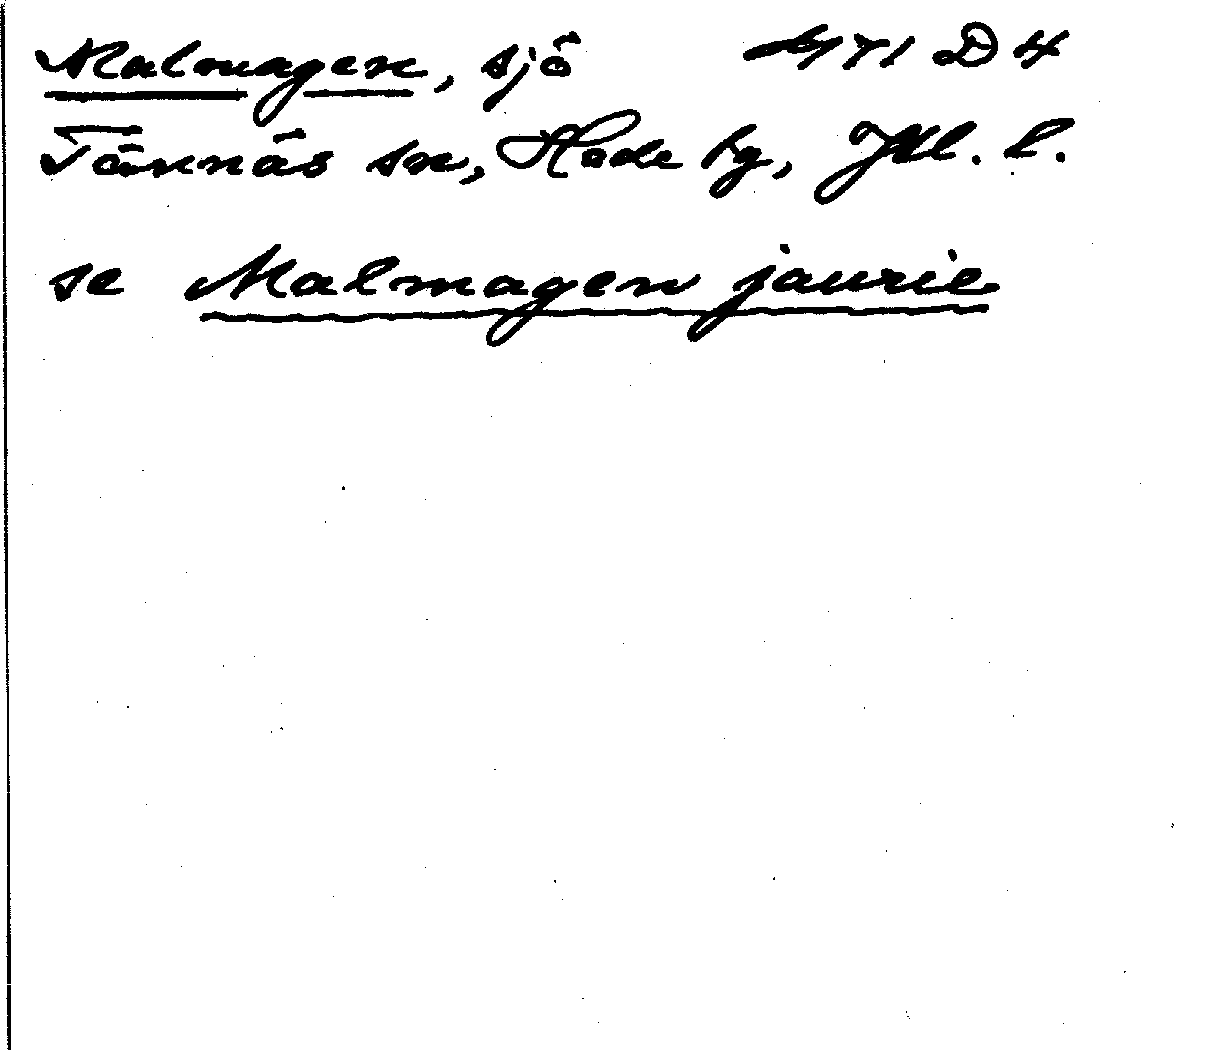 Malmagen, sjö 471 D 4
Tännäs sn, Hede tg, Jtl. l.
se Malmagen jaurie